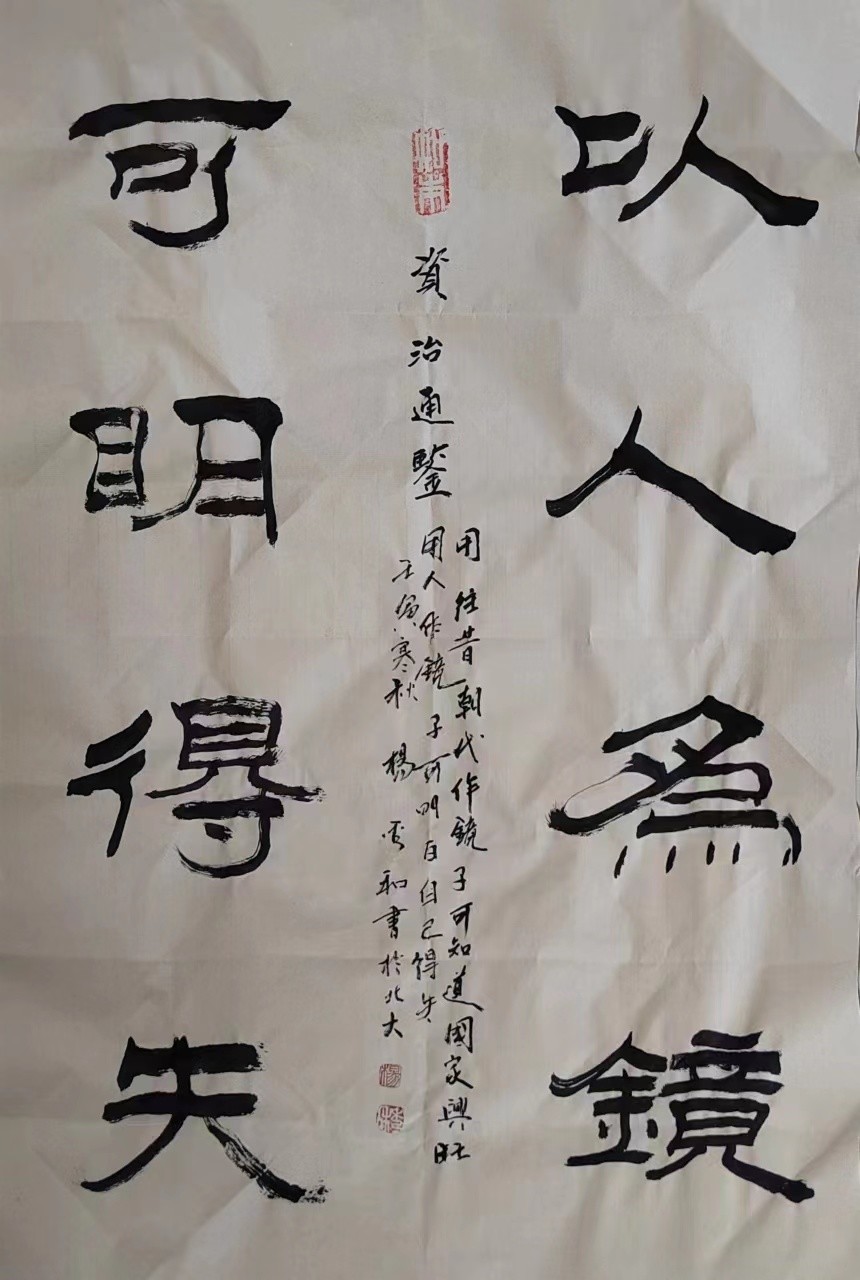 以人為鏡
資治通鑒
用往昔朝代作鏡子可知道國家興旺
用人作鏡子可明白自己得失
壬寅寒秋 楊 和書於北大
可明得失